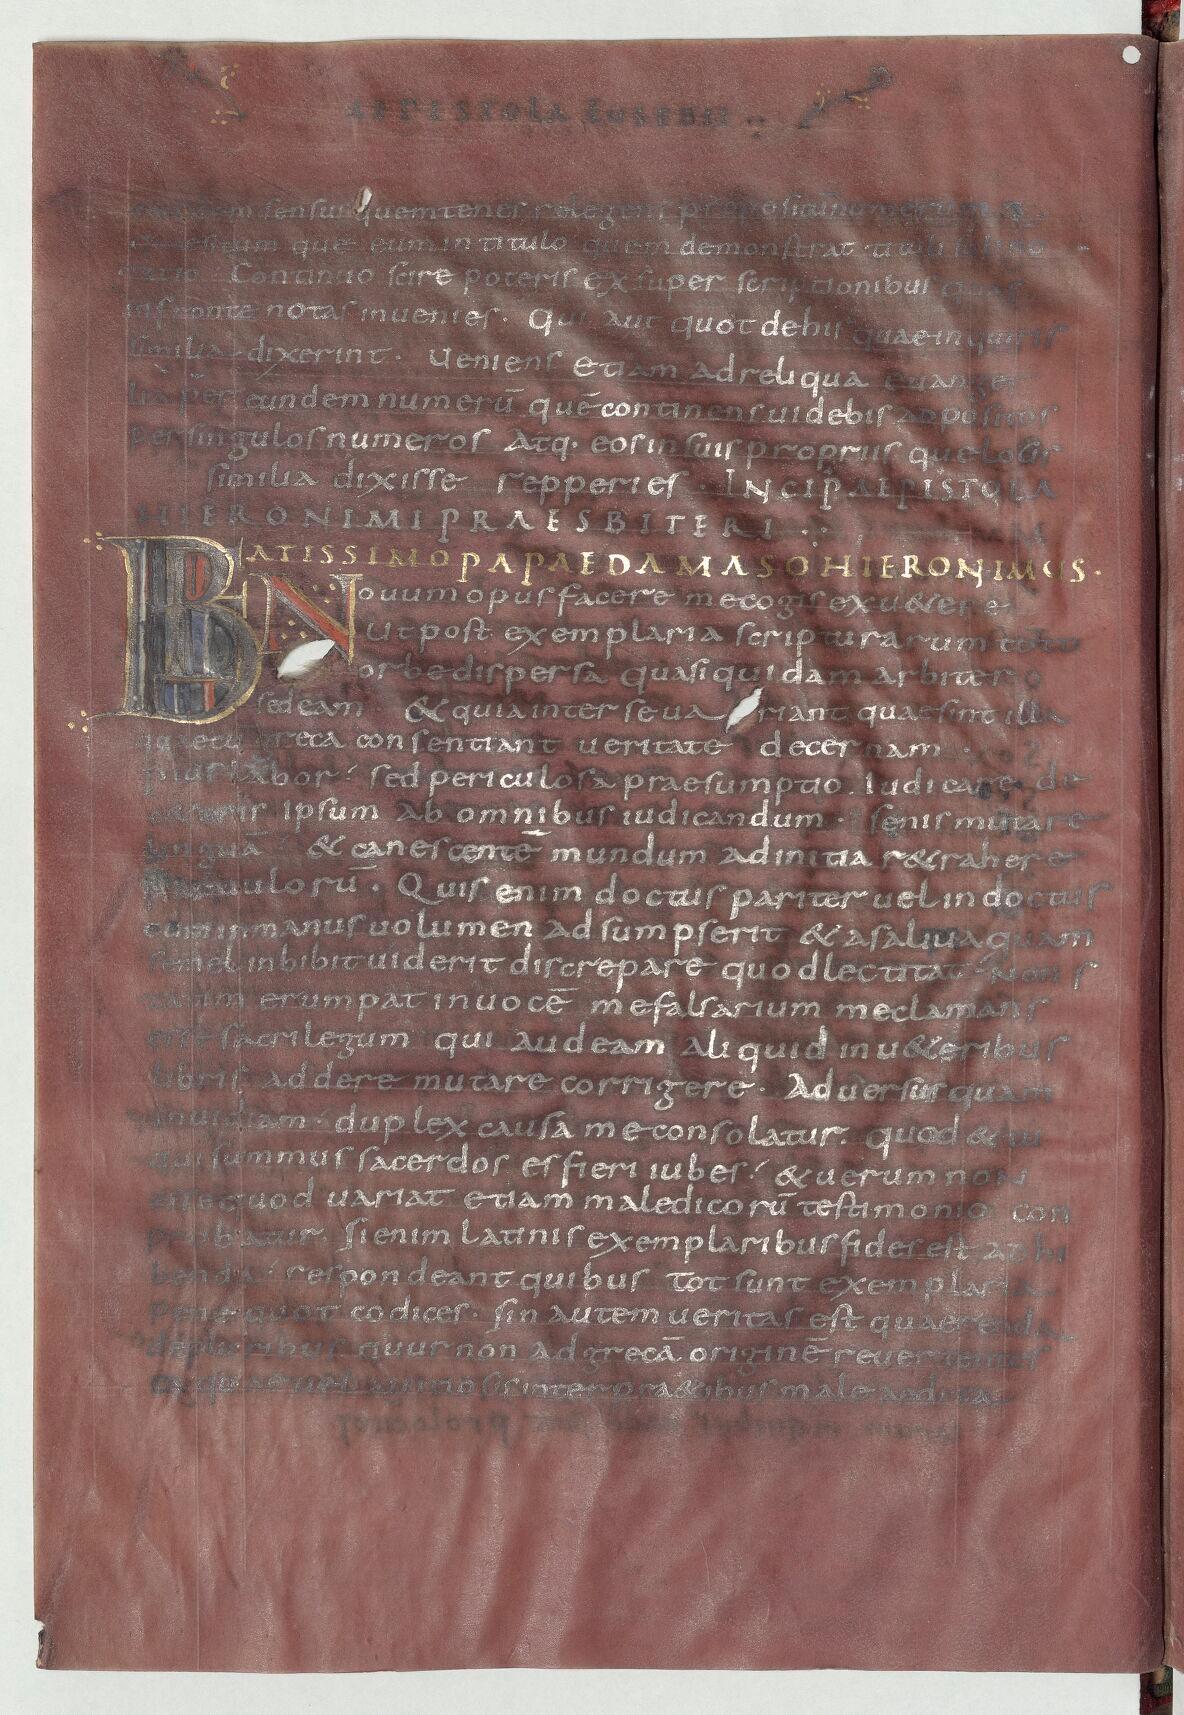 AEPISTOLA EUSEBII
sensui quem tenes relegens propositū numerum
que eum in titulo quem demonstrat tituli
tatio. Continuo scire poteris ex super scriptionibus quas
in fronte notas inuenies. Qui aut quot de hiis quae inquiris
similia dixerint. Ueniens etiam ad reliqua euange
lia per eundem numerū quē continens uidebis adpositos
per singulos numeros Atq. eos in suis propriis que locis
similia dixisse repperies. INCIP AEPISTOLA
HIERONIMI PRAESBITERI
BATISSIMO PAPAE DAMASO HIERONIMUS.
Nouum opus facere me cogis ex u&ere
Ut post exemplaria scripturarum toto
orbe dispersa quasi quidam arbiter
sedeam & quia inter se uariant quae sint illa
quae cū greca consentiant ueritate decernam.
pius labor. sed periculosa praesumptio. Iudicare de
c&eris ipsum ab omnibus iudicandum. Senis mutare
linguā & canescentē mundum ad initia r&rahere
paruulorū. Quis enim doctus pariter uel indoctus
cum in manus uolumen adsumpserit & a saliua quam
semel inbibit uiderit discrepare quod lectitat Non s
tatim erumpat in uocē me falsarium me clamans
esse sacrilegum qui audeam aliquid in u&eribus
libris addere mutare corrigere. Aduersus quam
inuidiam. duplex causa me consolatur. quod & tu
qui summus sacerdos es fieri iubes. & uerum non
esse quod uariat etiam maledicorū testimonio con
probatur. Si enim latinis exemplaribus fides est adhi
benda. respondeant quibus Tot sunt exemplaria
pene quot codices. Sin autem ueritas est quaerenda
de pluribus quur non ad grecā originē reuertentes
ea quae uel a uitiosis interpr&ibus male aedita